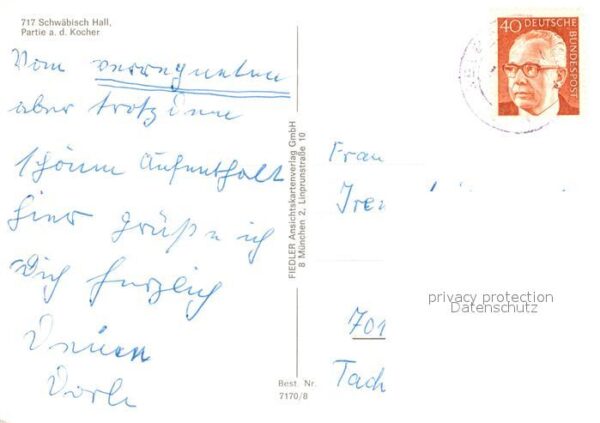 717 Schwäbisch Hall,
Partie a. d. Kocher
Vom verregneten
aber trotzdem
schönen Aufenthalt
hier grüße ich
Dich herzlich
FIEDLER Ansichtskartenverlag GmbH
8 München 2, Linprunstraße 10
Best. Nr.
7170/8
40 DEUTSCHE
BUNDESPOST
Frau
701
privacy protection
Datenschutz
Tach